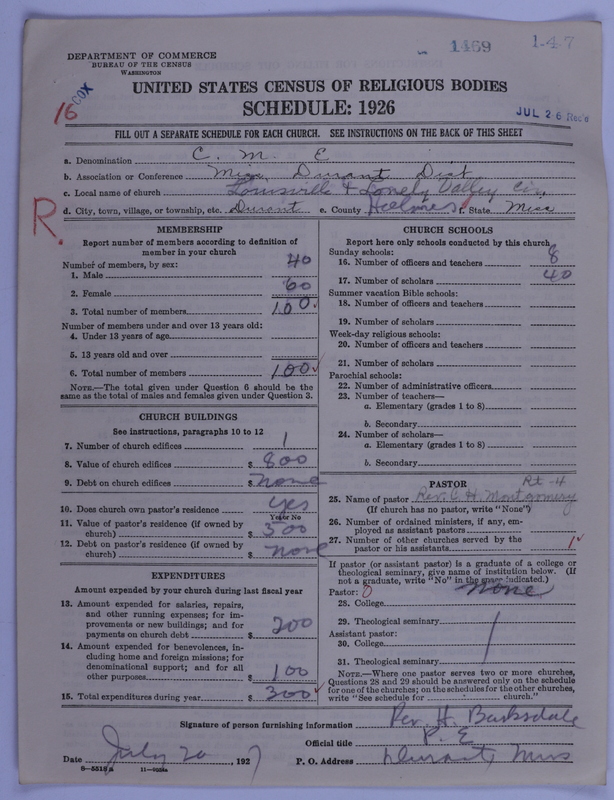 1469 1-47
DEPARTMENT OF COMMERCE
BUREAU OF THE CENSUS
WASHINGTON
16 COX
UNITED STATES CENSUS OF RELIGIOUS BODIES
SCHEDULE: 1926
JUL 26 Rec'd
FILL OUT A SEPARATE SCHEDULE FOR EACH CHURCH. SEE INSTRUCTIONS ON THE BACK OF THIS SHEET
a. Denomination C. M. E
b. Association or Conference Miss. Durant Dist
c. Local name of church Louisville & Lonely Valley Cir.
R.
d. City, town, village, or township, etc. Durant e. County Holmes f. State Miss
MEMBERSHIP
Report number of members according to definition of
member in your church
Number of members, by sex:
1. Male 40
2. Female 60
3. Total number of members 100
Number of members under and over 13 years old:
4. Under 13 years of age
5. 13 years old and over
6. Total number of members 100
NOTE.—The total given under Question 6 should be the
same as the total of males and females given under Question 3.
CHURCH BUILDINGS
See instructions, paragraphs 10 to 12
7. Number of church edifices 1
8. Value of church edifices $ 800
9. Debt on church edifices $ none
10. Does church own pastor's residence yes
Yes or No
11. Value of pastor's residence (if owned by
church) $ 500
12. Debt on pastor's residence (if owned by
church) $ none
EXPENDITURES
Amount expended by your church during last fiscal year
13. Amount expended for salaries, repairs,
and other running expenses; for im-
provements or new buildings; and for
payments on church debt $ 200
14. Amount expended for benevolences, in-
cluding home and foreign missions; for
denominational support; and for all
other purposes $ 100
15. Total expenditures during year $ 300
CHURCH SCHOOLS
Report here only schools conducted by this church
Sunday schools:
16. Number of officers and teachers 8
17. Number of scholars 40
Summer vacation Bible schools:
18. Number of officers and teachers
19. Number of scholars
Week-day religious schools:
20. Number of officers and teachers
21. Number of scholars
Parochial schools:
22. Number of administrative officers
23. Number of teachers—
a. Elementary (grades 1 to 8)
b. Secondary
24. Number of scholars—
a. Elementary (grades 1 to 8)
b. Secondary
PASTOR
Rt-4
25. Name of pastor Rev. C. H. Montgomery
(If church has no pastor, write "None")
26. Number of ordained ministers, if any, em-
ployed as assistant pastors
27. Number of other churches served by the
pastor or his assistants 1
If pastor (or assistant pastor) is a graduate of a college or
theological seminary, give name of institution below. (If
not a graduate, write "No" in the space indicated.)
Pastor: 0 none
28. College
29. Theological seminary
Assistant pastor:
30. College
31. Theological seminary
NOTE.—Where one pastor serves two or more churches,
Questions 28 and 29 should be answered only on the schedule
for one of the churches; on the schedules for the other churches,
write "See schedule for church."
Signature of person furnishing information Rev. H. Barksdale
Official title P. E
Date July 20, 1927 P. O. Address Durant, Miss
8—5518a 11—9034a